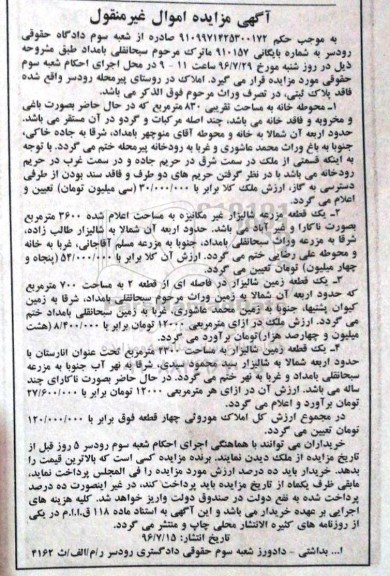 آگهی مزایده اموال غیرمنقول
به موجب حکم ۹۱۰۹۹۷۱۴۲۵۳۰۰۱۷۲ صادره از شعبه سوم دادگاه حقوقی
رودسر به شماره بایگانی ۹۱۰۱۵۷ ماترک مرحوم سبحانقلی بامداد طبق مشروحه
ذیل در روز شنبه مورخ ۹۶/۷/۲۹ ساعت ۱۱ - ۹ در محل اجرای احکام شعبه سوم
حقوقی مورد مزایده قرار می گیرد. املاک در روستای پیرمحله رودسر واقع شده
فاقد پلاک ثبتی، در تصرف وراث مرحوم فوق الذکر می باشد.
۱ـ محوطه خانه به مساحت تقریبی ۸۳۰ مترمربع که در حال حاضر بصورت باغی
و مخروبه و فاقد خانه می باشد، چند اصله مرکبات و گردو در آن مستقر می باشد.
حدود اربعه آن شمالا به خانه و محوطه آقای منوچهر بامداد، شرقا به جاده خاکی،
جنوبا به باغ وراث محمد عاشوری و غربا به رودخانه پیرمحله ختم می گردد. با توجه
به اینکه قسمتی از ملک در سمت شرق در حریم جاده و در سمت غرب در حریم
رودخانه می باشد با در نظر گرفتن حریم های دو طرف و فاقد سند بودن از طرفی
دسترسی به گاز، ارزش ملک کلا برابر با ۳۰/۰۰۰/۰۰۰ (سی میلیون تومان) تعیین و
اعلام می گردد.
۲ـ یک قطعه مزرعه شالیزار غیر مکانیزه به مساحت اعلام شده ۳۶۰۰ مترمربع
بصورت ناکارا و غیر آباد می باشد. حدود اربعه آن شمالا به شالیزار طالب زاده،
شرقا به مزرعه وراث سبحانقلی بامداد، جنوبا به مزرعه مسلم آقاجانی، غربا به خانه
و محوطه علی رضایی ختم می گردد. ارزش آن کلا برابر با ۵۴/۰۰۰/۰۰۰ (پنجاه و
چهار میلیون) تومان تعیین می گردد.
۳ـ یک قطعه زمین شالیزار در فاصله ای از قطعه ۲ به مساحت ۷۰۰ مترمربع
که حدود اربعه آن شمالا به زمین وراث مرحوم سبحانقلی بامداد، شرقا به زمین
کیوان جنوبا به زمین محمد عاشوری، غربا به زمین سبحانقلی بامداد ختم
می گردد. ارزش ملک در ازای مترمربعی ۱۲۰۰۰ تومان برابر با ۸/۴۰۰/۰۰۰ (هشت
میلیون و چهارصد هزار)تومان برآورد می گردد.
۴ـ یک قطعه زمین شالیزار به مساحت ۲۳۰۰ مترمربع تحت عنوان انارستان با
حدود اربعه شمالا به شالیزار سید محمود سیدی، شرقا به نهر آب جنوبا به مزرعه
سبحانقلی بامداد و غربا به نهر ختم می گردد. در حال حاضر بصورت ناکارای چند
ساله می باشد. ارزش آن در ازای هر مترمربعی ۱۲۰۰۰ تومان برابر با ۲۷/۶۰۰/۰۰۰
تومان برآورد و اعلام می گردد.
در مجموع ارزش کل املاک موروثی چهار قطعه فوق برابر با ۱۲۰/۰۰۰/۰۰۰
تومان تعیین می گردد.
خریداران می توانند با هماهنگی اجرای احکام شعبه سوم رودسر ۵ روز قبل از
تاریخ مزایده از ملک دیدن نمایند. برنده مزایده کسی است که بالاترین قیمت را
بدهد. خریدار باید ده درصد ارزش مورد مزایده را فی المجلس پرداخت نماید،
مابقی ظرف یکماه از تاریخ مزایده باید پرداخت کند، در غیر اینصورت ده درصد
پرداخت شده به نفع دولت در صندوق دولت واریز خواهد شد. کلیه هزینه های
اجرایی بر عهده خریدار می باشد و این آگهی به استناد ماده ۱۱۸ ق.ا.ا.م در یکی
از روزنامه های کثیره الانتشار محلی چاپ و منتشر می گردد.
تاریخ انتشار: ۹۶/۷/۱۵
ا... بداشتی - دادورز شعبه سوم حقوقی دادگستری رودسر ر/م/الف/ث ۴۱۶۲